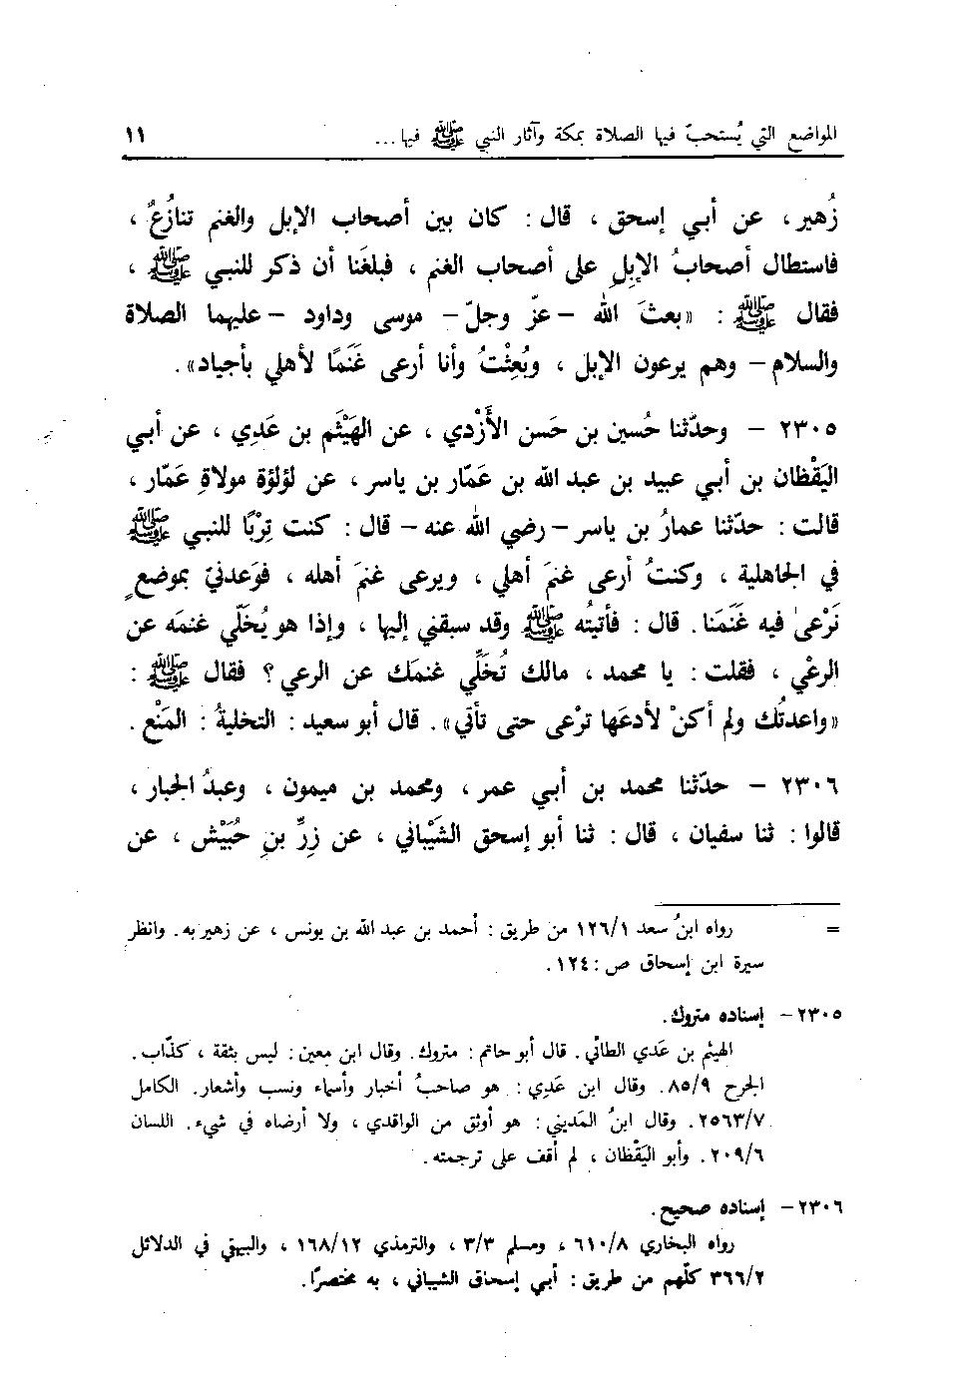 المواضع التي يُستحبّ فيها الصلاة بمكة وآثار النبي ﷺ فيها... ١١
زُهير، عن أبي إسحق ، قال : كان بين أصحاب الإبل والغنم تنازُعٌ ،
فاستطال أصحابُ الإبلِ على أصحاب الغنم ، فبلغَنا أن ذكر للنبي ﷺ ،
فقال ﷺ : «بعثَ الله – عزّ وجلّ – موسى وداود – عليهما الصلاة
والسلام – وهم يرعون الإبل ، وبُعِثْتُ وأنا أرعى غَنَمًا لأهلي بأجياد» .
٢٣٠٥ – وحدّثنا حُسين بن حَسن الأَزْدي ، عن الهَيْثَم بن عَدِي ، عن أبي
اليَقْظان بن أبي عبيد بن عبد الله بن عَمّار بن ياسر، عن لؤلؤة مولاةِ عَمّار ،
قالت : حدّثنا عمارُ بن ياسر – رضي الله عنه – قال : كنت تِرْبًا للنبي ﷺ
في الجاهلية ، وكنتُ أرعى غنمَ أهلي ، ويرعى غنمَ أهله ، فوَعدنيّ بموضعٍ
نَرْعىٰ فيه غَنَمَنا. قال : فأتيتُه ﷺ وقد سبقني إليها ، وإذا هو يُخَلّي غنمَه عن
الرعْي ، فقلت : يا محمد ، مالك تُخَلِّي غنمَك عن الرعي ؟ فقال ﷺ :
«واعدتُك ولم أكنْ لأدعَها ترْعى حتى تأتي» . قال أبو سعيد : التخليةُ : المَنْع .
٢٣٠٦ – حدّثنا محمد بن أبي عمر ، ومحمد بن ميمون ، وعبدُ الجبار ،
قالوا : ثنا سفيان ، قال : ثنا أبو إسحق الشَيْباني ، عن زِرِّ بنِ حُبَيْش ، عن
= رواه ابنُ سعد ١٢٦/١ من طريق : أحمد بن عبد الله بن يونس ، عن زهير به. وانظر
سيرة ابن إسحاق ص : ١٢٤.
٢٣٠٥ – إسناده متروك.
الهيثم بن عَدي الطائي . قال أبو حاتم : متروك. وقال ابن معين : ليس بثقة ، كذّاب.
الجرح ٨٥/٩. وقال ابن عَدِي : هو صاحبُ أخبار وأسماء ونسب وأشعار. الكامل
٢٥٦٣/٧. وقال ابنُ المَديني : هو أوثق من الواقدي ، ولا أرضاه في شيء. اللسان
٢٠٩/٦. وأبو اليَقْظان ، لم أقف على ترجمته.
٢٣٠٦ – إسناده صحيح.
رواه البخاري ٦١٠/٨ ، ومسلم ٣/٣ ، والترمذي ١٦٨/١٢ ، والبيهقي في الدلائل
٣٦٦/٢ كلّهم من طريق : أبي إسحاق الشيباني ، به مختصرًا.